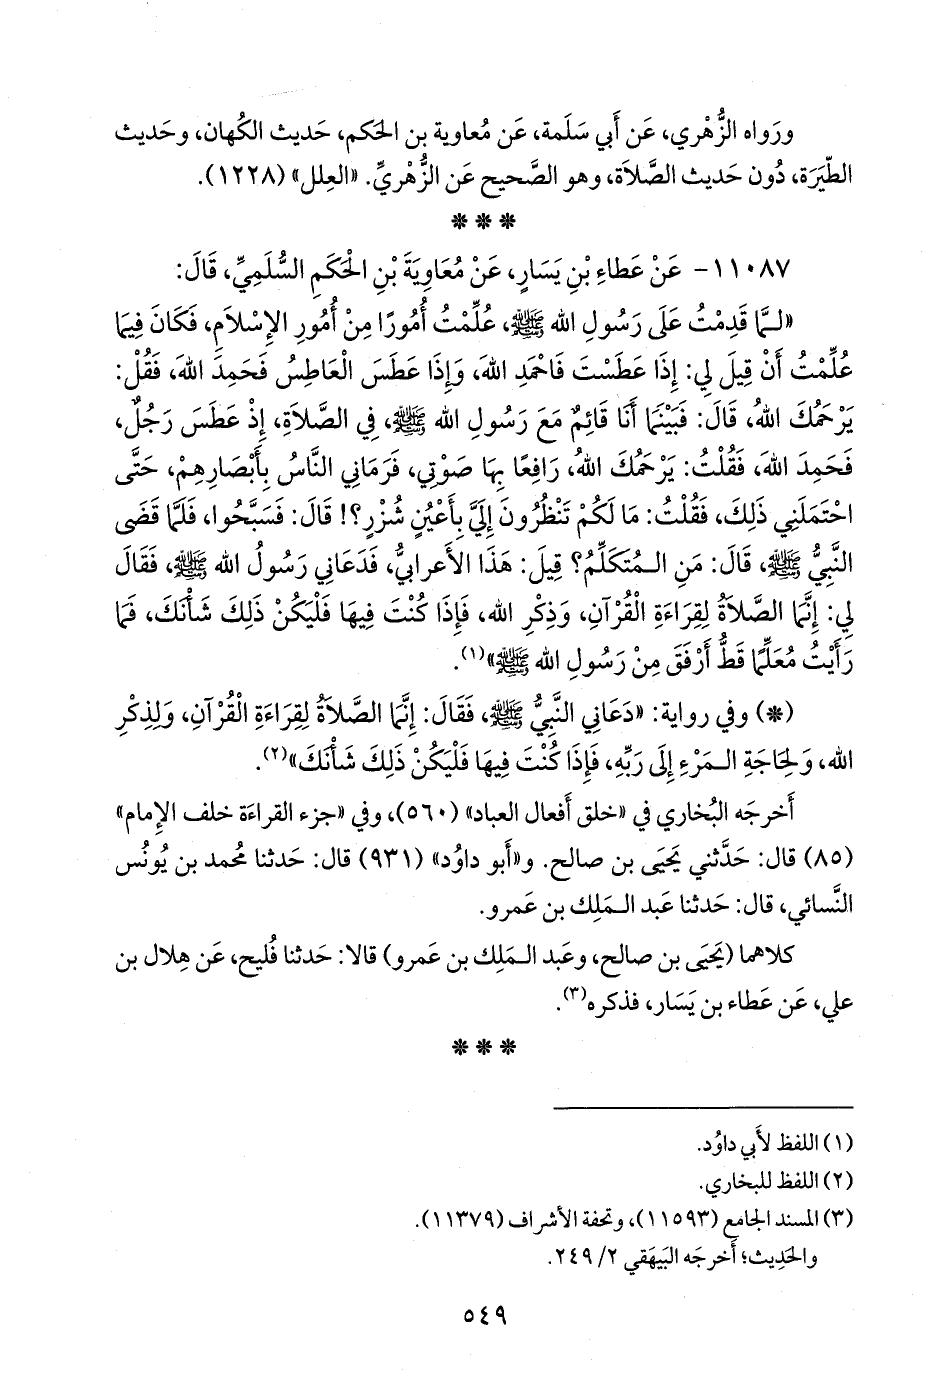 ورَواه الزُّهْري، عَن أَبي سَلَمة، عَن مُعاوية بن الحَكم، حَديث الكُهان، وحَديث
الطِّيَرَة، دُون حَديث الصَّلاَة، وهو الصَّحيح عَن الزُّهْريِّ. «العِلل» (١٢٢٨).
* * *
١١٠٨٧- عَنْ عَطَاءِ بْنِ يَسَارٍ، عَنْ مُعَاوِيَةَ بْنِ الْحَكَمِ السُّلَمِيِّ، قَالَ:
«لـمَّا قَدِمْتُ عَلَى رَسُولِ الله ﷺ، عُلِّمْتُ أُمُورًا مِنْ أُمُورِ الإِسْلاَمِ، فَكَانَ فِيمَا
عُلِّمْتُ أَنْ قِيلَ لِي: إِذَا عَطَسْتَ فَاحْمَدِ اللهَ، وَإِذَا عَطَسَ الْعَاطِسُ فَحَمِدَ اللهَ، فَقُلْ:
يَرْحَمُكَ اللهُ، قَالَ: فَبَيْنَمَا أَنَا قَائِمٌ مَعَ رَسُولِ الله ﷺ، فِي الصَّلاَةِ، إِذْ عَطَسَ رَجُلٌ،
فَحَمِدَ اللهَ، فَقُلْتُ: يَرْحَمُكَ اللهُ، رَافِعًا بِهَا صَوْتِي، فَرَمَانِي النَّاسُ بِأَبْصَارِهِمْ، حَتَّى
احْتَمَلَنِي ذَلِكَ، فَقُلْتُ: مَا لَكُمْ تَنْظُرُونَ إِلَيَّ بِأَعْيُنٍ شُزْرٍ؟! قَالَ: فَسَبَّحُوا، فَلَمَّا قَضَى
النَّبِيُّ ﷺ، قَالَ: مَنِ الـمُتَكَلِّمُ؟ قِيلَ: هَذَا الأَعرابيُّ، فَدَعَانِي رَسُولُ الله ﷺ، فَقَالَ
لِي: إِنَّمَا الصَّلاَةُ لِقِرَاءَةِ الْقُرْآنِ، وَذِكْرِ الله، فَإِذَا كُنْتَ فِيهَا فَلْيَكُنْ ذَلِكَ شَأْنَكَ، فَمَا
رَأَيْتُ مُعَلِّمًا قَطُّ أَرْفَقَ مِنْ رَسُولِ الله ﷺ»(١).
(*) وفي رواية: «دَعَانِي النَّبِيُّ ﷺ، فَقَالَ: إِنَّمَا الصَّلاَةُ لِقِرَاءَةِ الْقُرْآنِ، وَلِذِكْرِ
الله، وَلِحَاجَةِ الـمَرْءِ إِلَى رَبِّهِ، فَإِذَا كُنْتَ فِيهَا فَلْيَكُنْ ذَلِكَ شَأْنَكَ»(٢).
أَخرجَه البُخاري في «خلق أَفعال العباد» (٥٦٠)، وفي «جزء القراءَة خلف الإِمام»
(٨٥) قال: حَدَّثني يَحيَى بن صالح. و«أَبو داوُد» (٩٣١) قال: حَدثنا مُحمد بن يُونُس
النَّسائي، قال: حَدثنا عَبد الـمَلِك بن عَمرو.
كلاهما (يَحيَى بن صالح، وعَبد الـمَلِك بن عَمرو) قالا: حَدثنا فُليح، عَن هِلال بن
علي، عَن عَطاء بن يَسَار، فذكره(٣).
* * *
(١) اللفظ لأَبي داوُد.
(٢) اللفظ للبخاري.
(٣) المسند الجامع (١١٥٩٣)، وتحفة الأشراف (١١٣٧٩).
والحَدِيث؛ أَخرجَه البَيهَقي ٢/ ٢٤٩.
٥٤٩